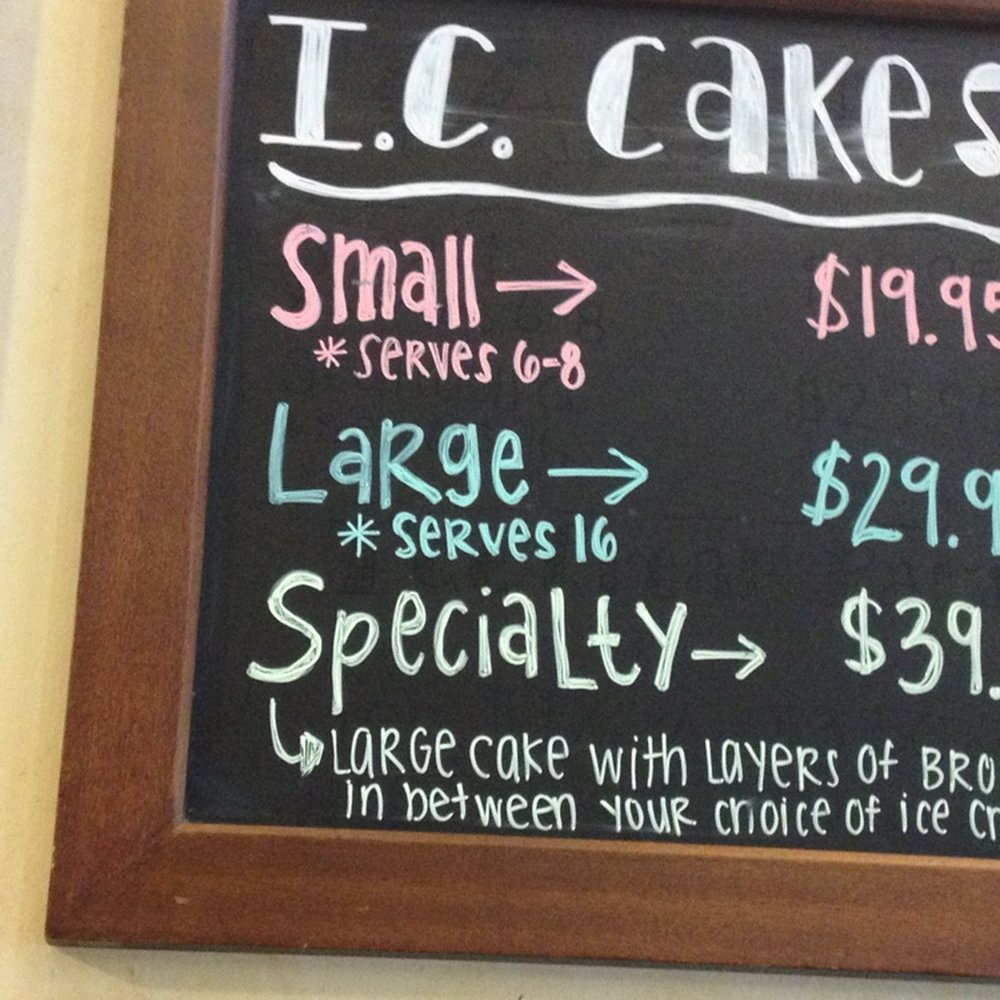 I.C. Cakes
Small → $19.95
*Serves 6-8
Large → $29.9
*Serves 16
Specialty → $39.
Large cake with layers of Bro
in between your choice of ice cr